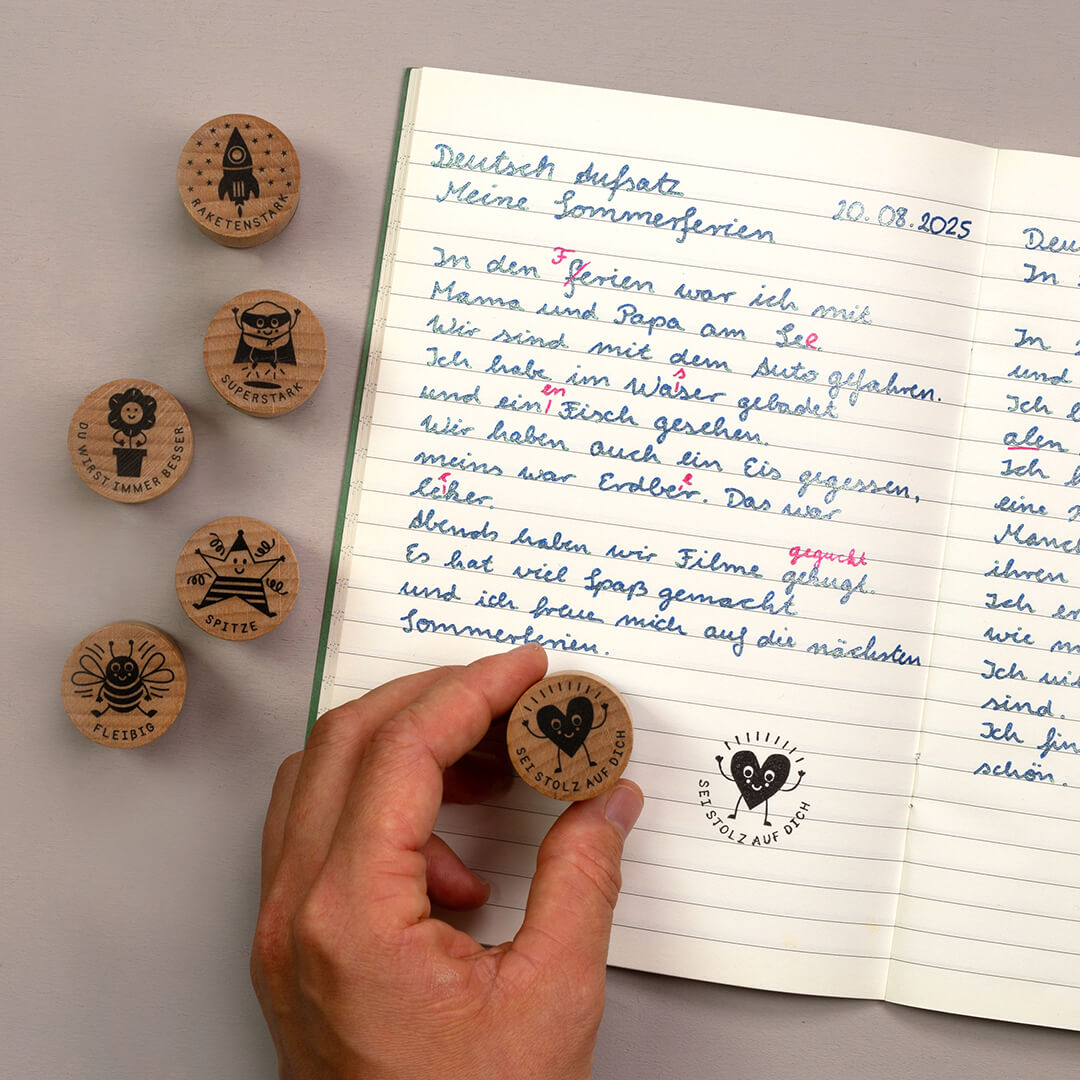 RAKETENSTARK
SUPERSTARK
DU WIRST IMMER BESSER
SPITZE
FLEIßIG
SEI STOLZ AUF DICH
Deutsch Aufsatz
Meine Sommerferien
20.08.2025
F
In den ferien war ich mit
Mama und Papa am See.
Wir sind mit dem Auto gefahren.
s
Ich habe im Waser gebadet
en
und ein Fisch gesehen.
Wir haben auch ein Eis gegessen,
e
meins war Erdber. Das war
c
leker.
Abends haben wir Filme gekugt.
geguckt
Es hat viel Spaß gemacht
und ich freue mich auf die nächsten
Sommerferien.
SEI STOLZ AUF DICH
Deu
In
In
und
Ich
alen
Ich
eine
Manch
ihren
Ich
wie
Ich
sind.
Ich
schön.